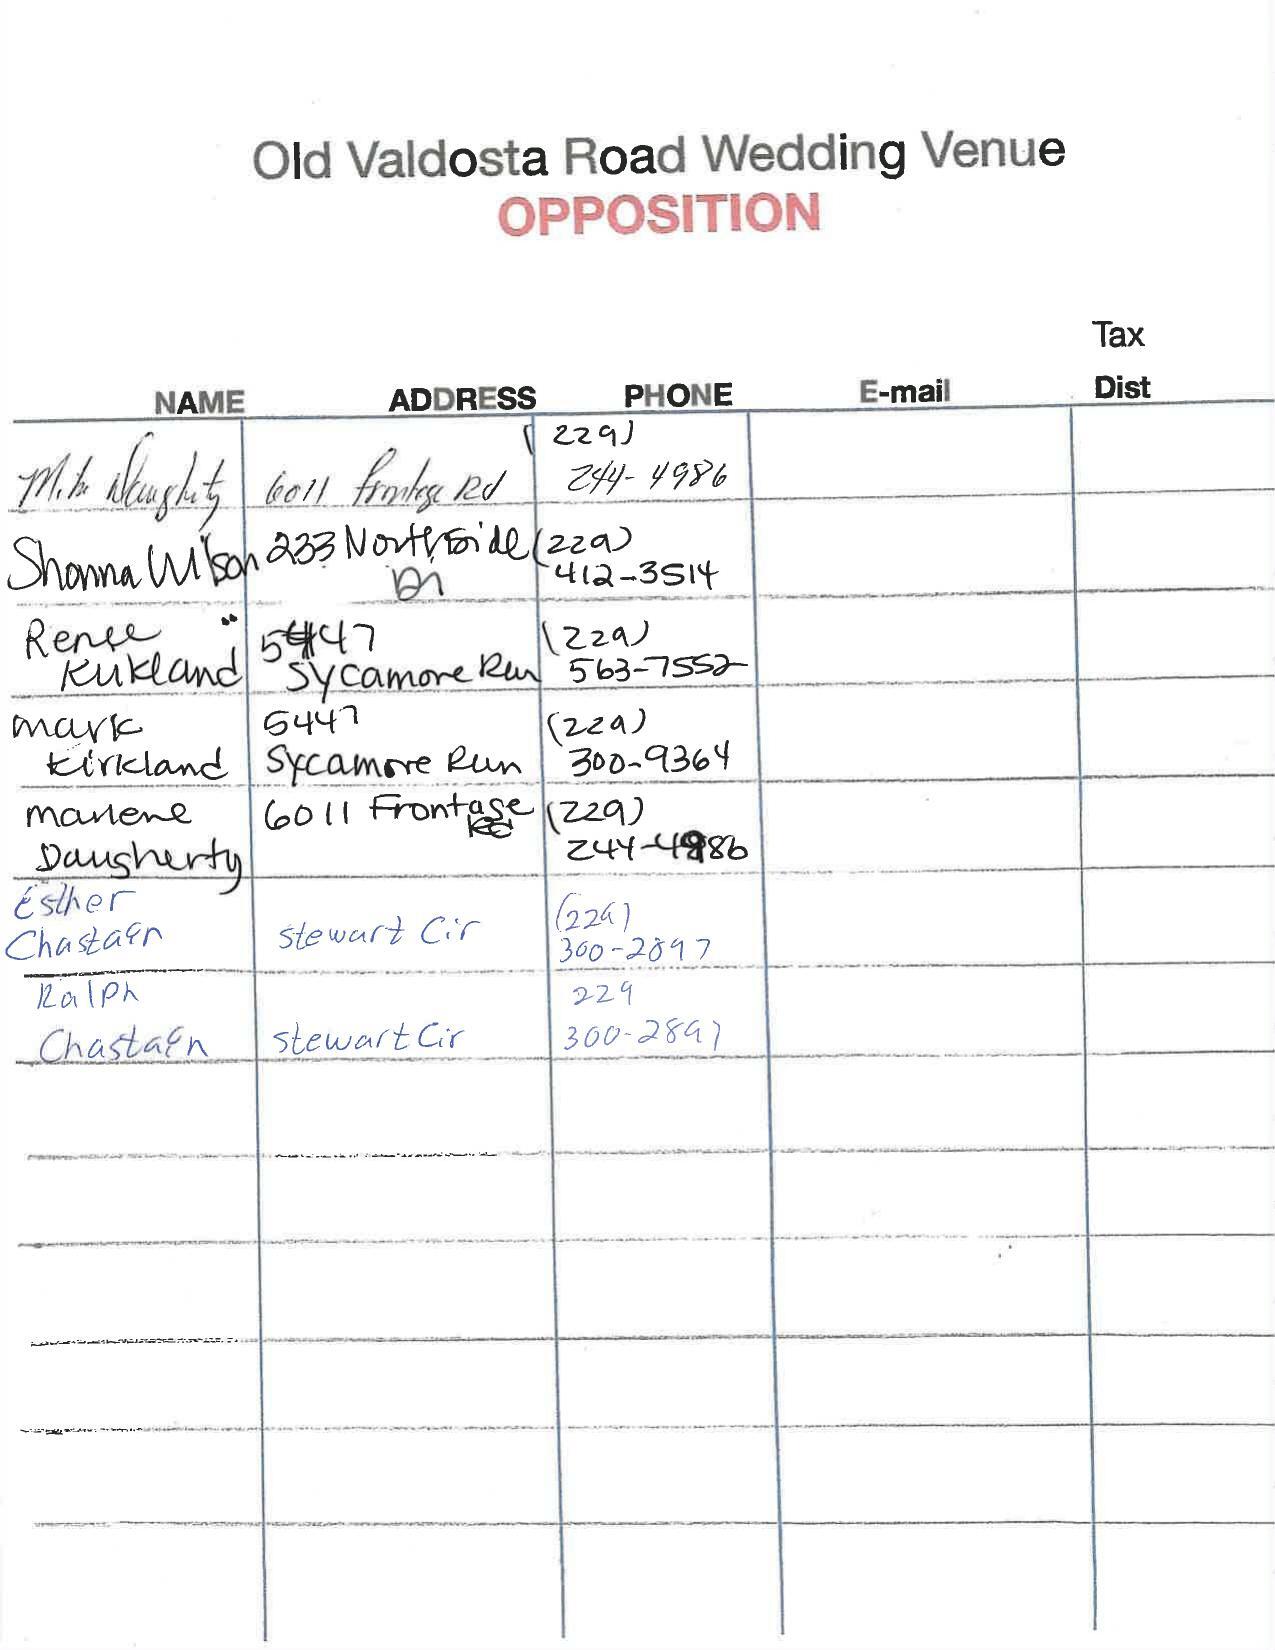 Old Valdosta Road Wedding Venue
OPPOSITION
Tax
NAME ADDRESS PHONE E-mail Dist
(229)
Mike Daughety 6011 Frontage Rd 244-4986
Shonna Wilson 233 Northside (229)
Dr 412-3514
Renee 5447 (229)
Kirkland Sycamore Run 563-7552
mark 5447 (229)
Kirkland Sycamore Run 300-9364
Marlene 6011 Frontage (229)
Rd
Daugherty 244-4986
Esther (229)
Chastain stewart Cir 300-2897
Ralph 229
Chastain stewart Cir 300-2897